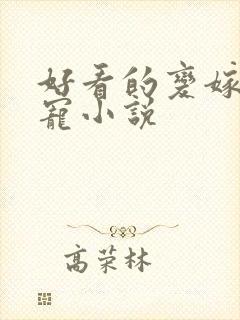 好看的变嫁
宠小说
高荣林